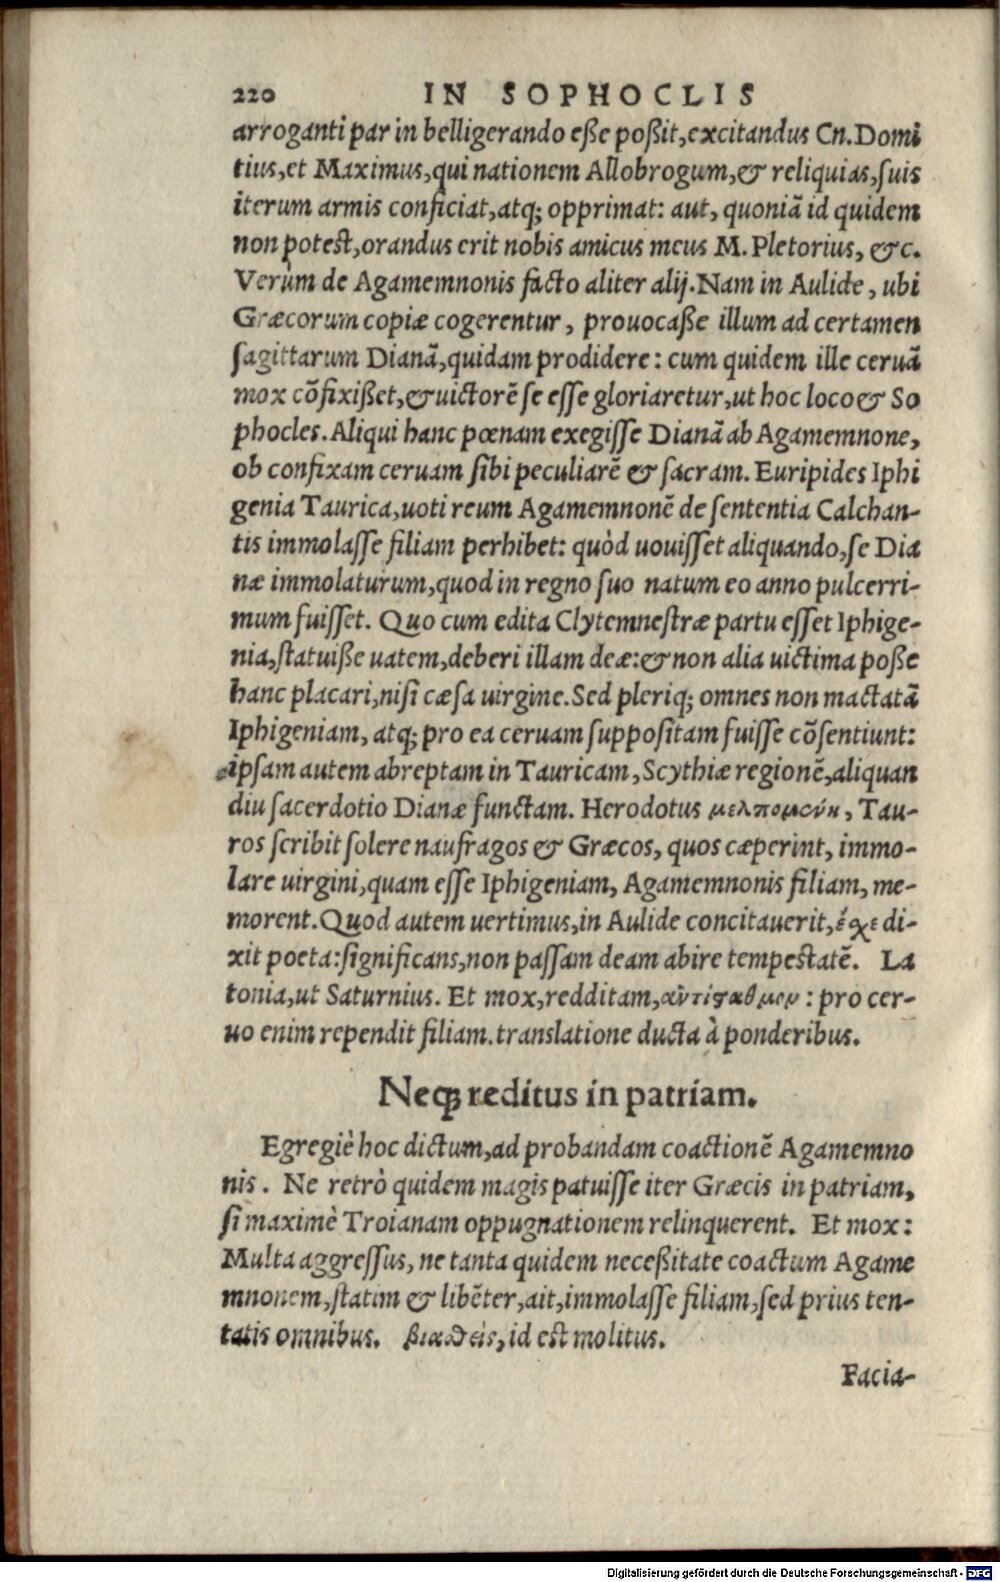 220 IN SOPHOCLIS
arroganti par in belligerando eße poßit, excitandus Cn. Domi
tius, et Maximus, qui nationem Allobrogum, & reliquias, suis
iterum armis conficiat, atq; opprimat: aut, quoniã id quidem
non potest, orandus erit nobis amicus meus M. Pletorius, &c.
Verùm de Agamemnonis facto aliter alij. Nam in Aulide, ubi
Græcorum copiæ cogerentur, prouocaße illum ad certamen
sagittarum Dianã, quidam prodidere: cum quidem ille ceruã
mox cõfixißet, & uictorẽ se esse gloriaretur, ut hoc loco & So
phocles. Aliqui hanc pœnam exegisse Dianã ab Agamemnone,
ob confixam ceruam sibi peculiarẽ & sacram. Euripides Iphi
genia Taurica, uoti reum Agamemnonẽ de sententia Calchan-
tis immolasse filiam perhibet: quòd uouisset aliquando, se Dia
næ immolaturum, quod in regno suo natum eo anno pulcerri-
mum fuisset. Quo cum edita Clytemnestræ partu esset Iphige-
nia, statuiße uatem, deberi illam deæ: & non alia uictima poße
hanc placari, nisi cæsa uirgine. Sed pleriq; omnes non mactatã
Iphigeniam, atq; pro ea ceruam suppositam fuisse cõsentiunt:
ipsam autem abreptam in Tauricam, Scythiæ regionẽ, aliquan
diu sacerdotio Dianæ functam. Herodotus μελπομένη, Tau-
ros scribit solere naufragos & Græcos, quos cæperint, immo-
lare uirgini, quam esse Iphigeniam, Agamemnonis filiam, me-
morent. Quod autem uertimus, in Aulide concitauerit, ἔσχε di-
xit poeta: significans, non passam deam abire tempestatẽ. La
tonia, ut Saturnius. Et mox, redditam, ἀντίσταθμον: pro cer-
uo enim rependit filiam. translatione ducta à ponderibus.
Neq; reditus in patriam.
Egregiè hoc dictum, ad probandam coactionẽ Agamemno
nis. Ne retrò quidem magis patuisse iter Græcis in patriam,
si maximè Troianam oppugnationem relinquerent. Et mox:
Multa aggressus, ne tanta quidem neceßitate coactum Agame
mnonem, statim & libẽter, ait, immolasse filiam, sed prius ten-
tatis omnibus. βιασθεὶς, id est molitus.
Facia-
Digitalisierung gefördert durch die Deutsche Forschungsgemeinschaft - DFG